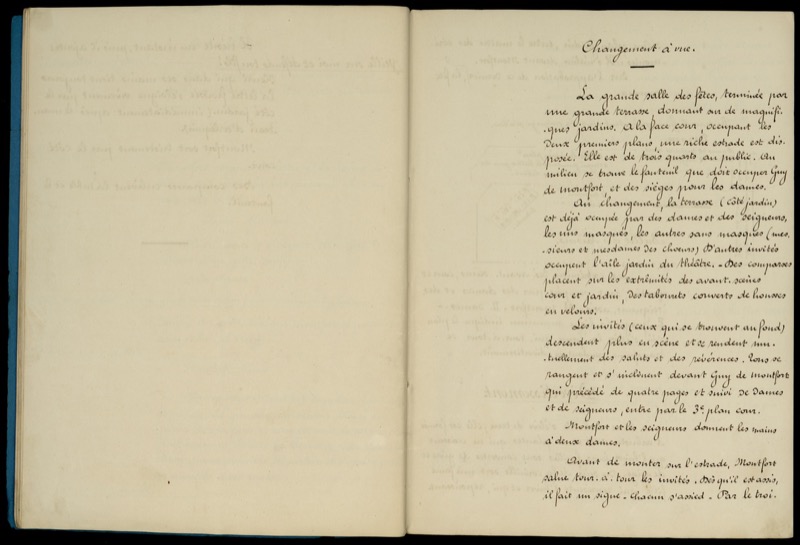 Changement à vue.
La grande salle des fêtes, terminée par
une grande terrasse, donnant sur de magnifi-
-ques jardins. A la face cour, occupant les
deux premiers plans, une riche estrade est dis-
posée. Elle est de trois quarts au public. Au
milieu se trouve le fauteuil que doit occuper Guy
de montfort, et des sièges pour les dames.
Au changement, la terrasse (côté jardin)
est déjà occupée par des dames et des seigneurs,
les uns masqués, les autres sans masques (mes-
-sieurs et mesdames des chœurs) D'autres invités
occupent l'aile jardin du théâtre. - Des comparses
placent sur les extrémités des avant-scènes
cour et jardin, des tabourets couverts de housses
en velours.
Les invités (ceux qui se trouvent au fond)
descendent plus en scène et se rendent mu-
-tuellement des saluts et des révérences. Tous se
rangent et s'inclinent devant Guy de montfort
qui précédé de quatre pages et suivi de dames
et de seigneurs, entre par le 3e plan cour.
Montfort et les seigneurs donnent les mains
à deux dames.
Avant de monter sur l'estrade, Montfort
salue tour-à-tour les invités. Dès qu'il est assis,
il fait un signe - chacun s'assied. - Par le troi-